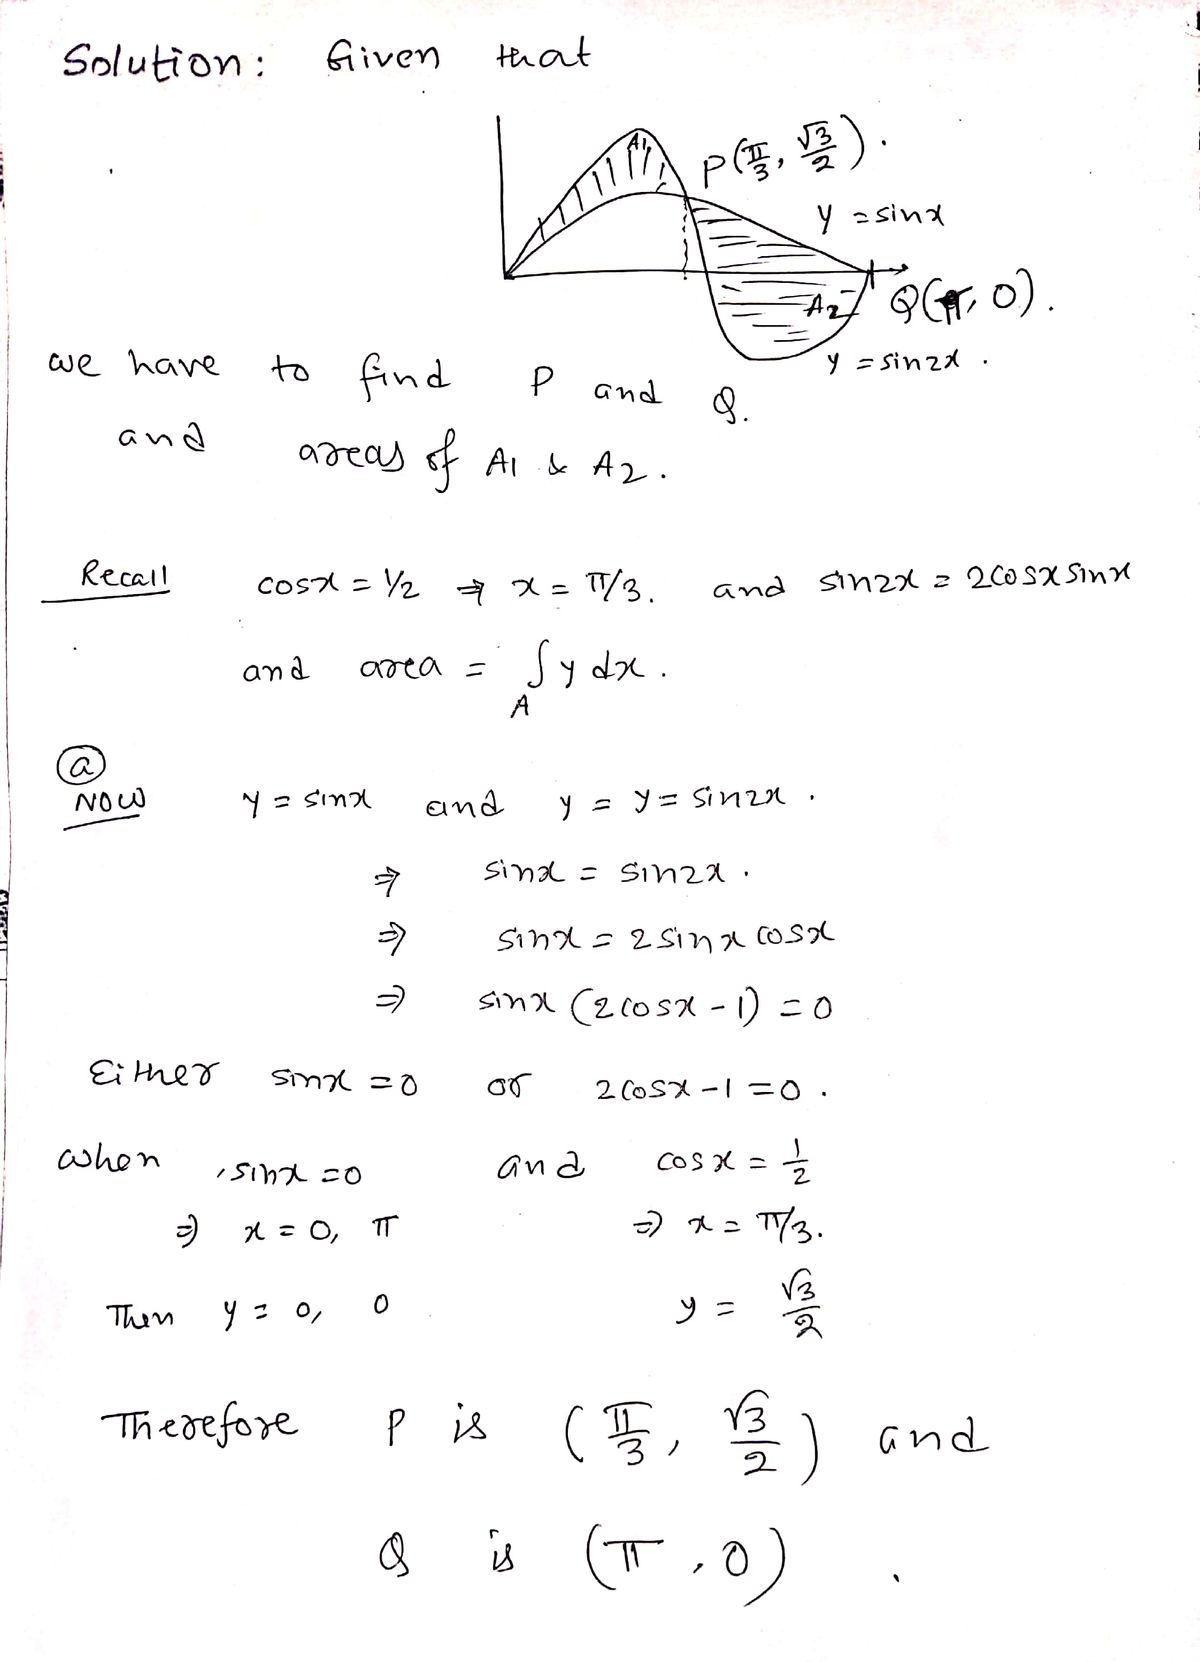 Solution: Given that
A1
P(π/3, √3/2).
y = sinx
A2
Q(π, 0).
y = sin2x.
we have to find P and Q.
and areas of A1 & A2.
Recall cosx = 1/2 ⇒ x = π/3. and sin2x = 2cosxsinx
and area = ∫_A y dx.
(a)
Now y = sinx and y = y = sin2x.
⇒ sinx = sin2x.
⇒ sinx = 2sinxcosx
⇒ sinx (2cosx - 1) = 0
Either sinx = 0 or 2cosx - 1 = 0.
when sinx = 0 and cosx = 1/2
⇒ x = 0, π ⇒ x = π/3.
Then y = 0, 0 y = √3/2
Therefore P is (π/3, √3/2) and
Q is (π, 0).